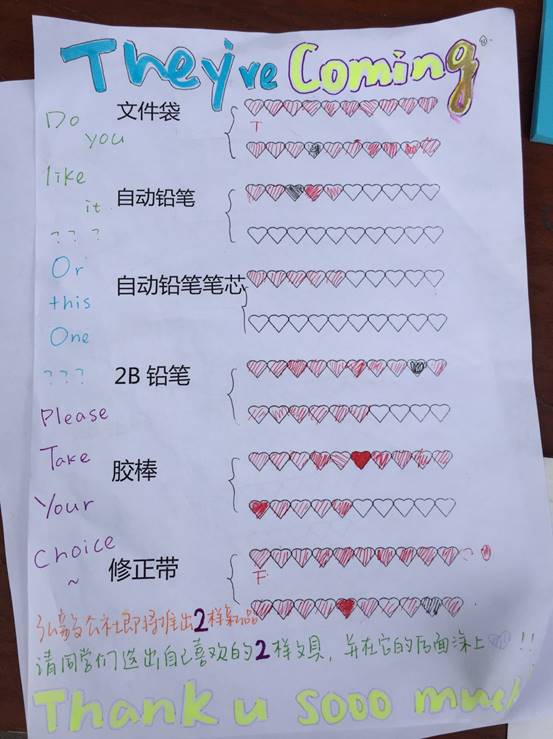 They're Coming
文件袋
T
Do
you
like
it
???
自动铅笔
Or
this
One
???
自动铅笔笔芯
2B 铅笔
Please
Take
Your
Choice
~
胶棒
修正带
F
弘毅公社即将推出2样新品
请同学们选出自己喜欢的2样文具，并在它的后面涂上!!
Thank u sooo much